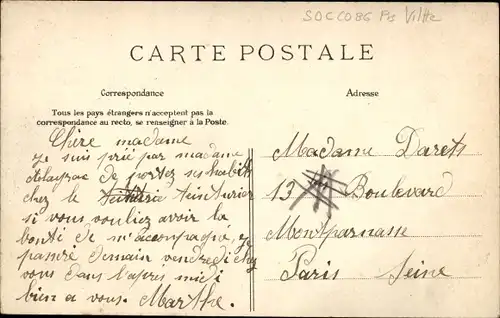 SOCCO86 Ps Vil#e
CARTE POSTALE
Correspondance
Adresse
Tous les pays étrangers n'acceptent pas la
correspondance au recto, se renseigner à la Poste.
Chère madame
je suis prié par madame
de portez ses habits
chez le teinturier
si vous vouliez avoir la
bonti de m'accompagné, je
passré demain vendredi chez
vous dans l'apres midi
bien a vous. Marthe.
Madame Darets
13 Boulevard
Montparnasse
Paris Seine